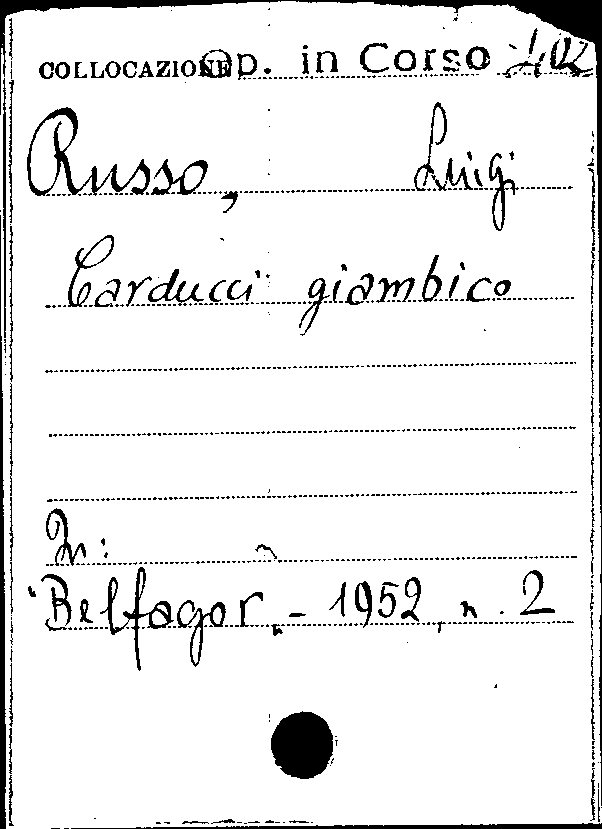 COLLOCAZIONE Op. in Corso 402
Russo, Luigi
Carducci giambico
In:
"Belfagor„ - 1952, n. 2